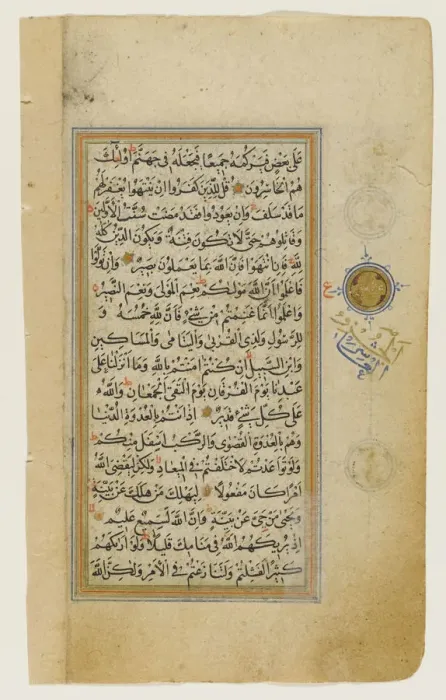 عَلَىٰ بَعْضٍ فَيَرْكُمَهُ جَمِيعًا فَيَجْعَلَهُ فِي جَهَنَّمَ أُولَٰئِكَ
هُمُ الْخَاسِرُونَ قُلْ لِلَّذِينَ كَفَرُوا إِنْ يَنْتَهُوا يُغْفَرْ لَهُمْ
مَا قَدْ سَلَفَ وَإِنْ يَعُودُوا فَقَدْ مَضَتْ سُنَّتُ الْأَوَّلِينَ
وَقَاتِلُوهُمْ حَتَّىٰ لَا تَكُونَ فِتْنَةٌ وَيَكُونَ الدِّينُ كُلُّهُ
لِلَّهِ فَإِنِ انْتَهَوْا فَإِنَّ اللَّهَ بِمَا يَعْمَلُونَ بَصِيرٌ وَإِنْ تَوَلَّوْا
فَاعْلَمُوا أَنَّ اللَّهَ مَوْلَٰكُمْ نِعْمَ الْمَوْلَىٰ وَنِعْمَ النَّصِيرُ
وَاعْلَمُوا أَنَّمَا غَنِمْتُمْ مِنْ شَيْءٍ فَأَنَّ لِلَّهِ خُمُسَهُ وَ
لِلرَّسُولِ وَلِذِي الْقُرْبَىٰ وَالْيَتَامَىٰ وَالْمَسَاكِينِ
وَابْنِ السَّبِيلِ إِنْ كُنْتُمْ آمَنْتُمْ بِاللَّهِ وَمَا أَنْزَلْنَا عَلَىٰ
عَبْدِنَا يَوْمَ الْفُرْقَانِ يَوْمَ الْتَقَى الْجَمْعَانِ وَاللَّهُ
عَلَىٰ كُلِّ شَيْءٍ قَدِيرٌ إِذْ أَنْتُمْ بِالْعُدْوَةِ الدُّنْيَا
وَهُمْ بِالْعُدْوَةِ الْقُصْوَىٰ وَالرَّكْبُ أَسْفَلَ مِنْكُمْ
وَلَوْ تَوَاعَدْتُمْ لَاخْتَلَفْتُمْ فِي الْمِيعَادِ وَلَٰكِنْ لِيَقْضِيَ اللَّهُ
أَمْرًا كَانَ مَفْعُولًا لِيَهْلِكَ مَنْ هَلَكَ عَنْ بَيِّنَةٍ
وَيَحْيَىٰ مَنْ حَيَّ عَنْ بَيِّنَةٍ وَإِنَّ اللَّهَ لَسَمِيعٌ عَلِيمٌ
إِذْ يُرِيكَهُمُ اللَّهُ فِي مَنَامِكَ قَلِيلًا وَلَوْ أَرَٰكَهُمْ
كَثِيرًا لَفَشِلْتُمْ وَلَتَنَازَعْتُمْ فِي الْأَمْرِ وَلَٰكِنَّ اللَّهَ
ع